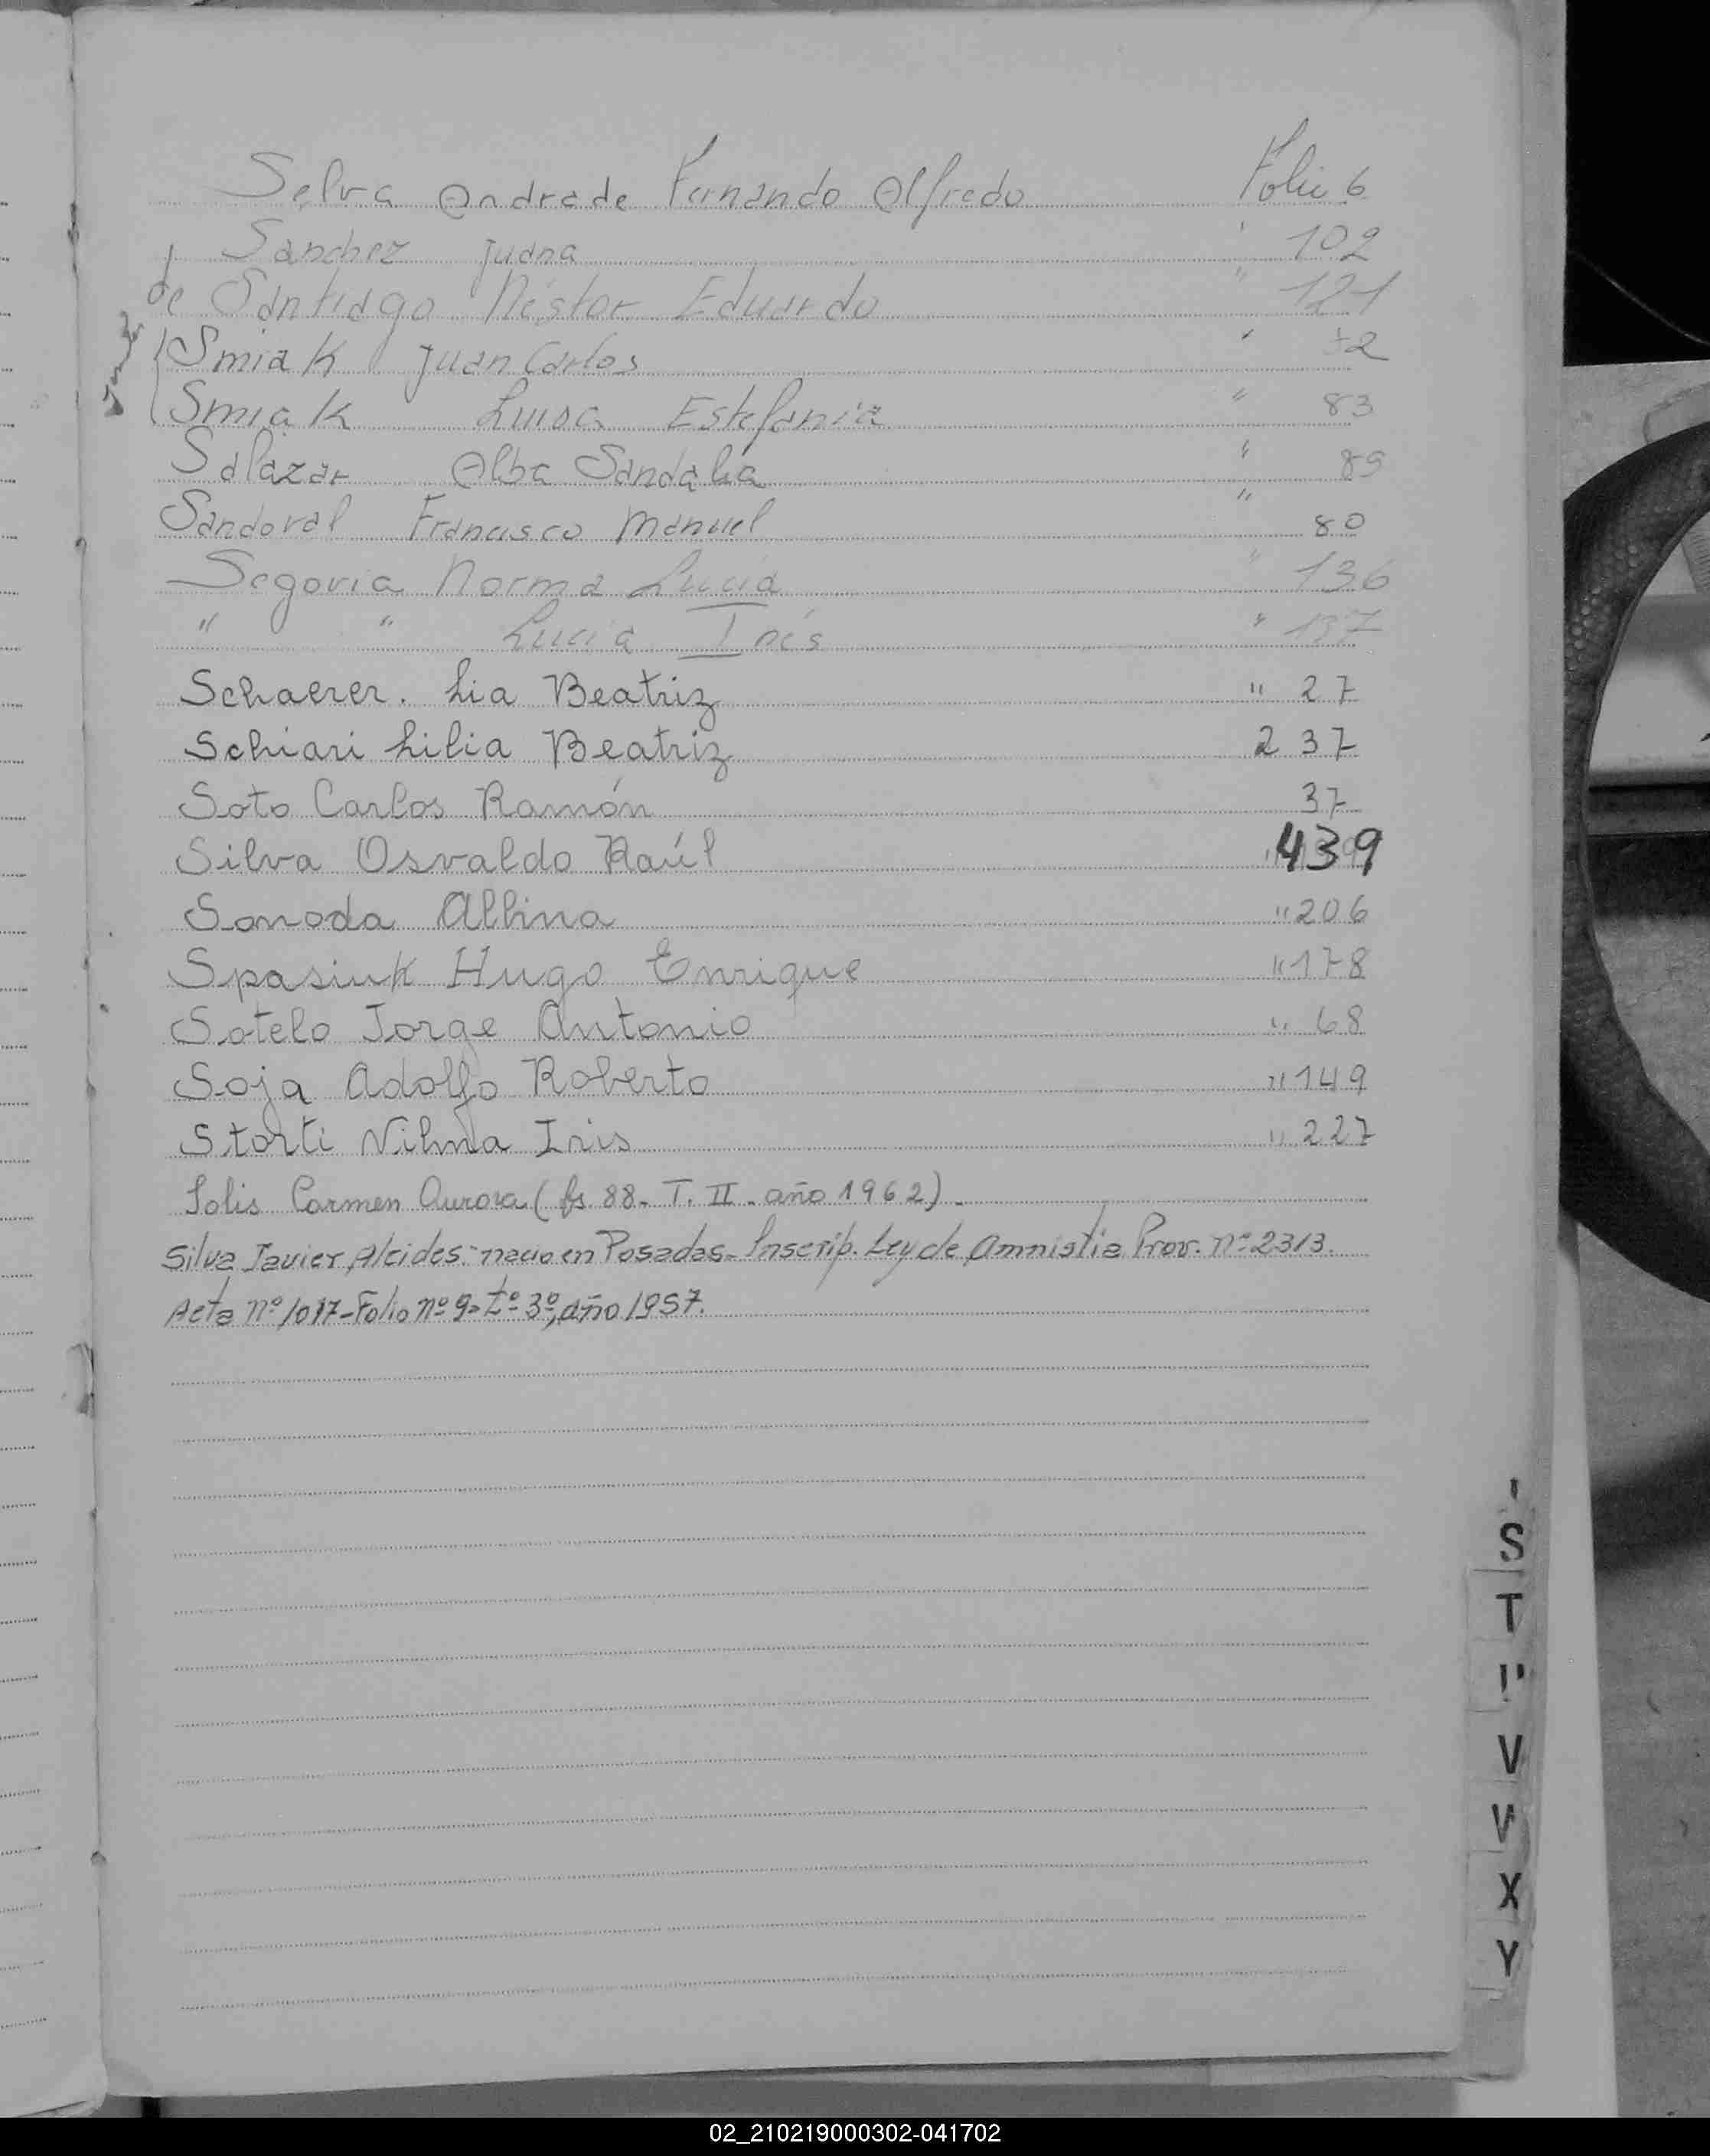 Selva Andrade Fernando Alfredo Folio 6
Sanchez Juana " 102
de Santiago Néstor Eduardo " 121
Smiak Juan Carlos " 72
Smiak Luisa Estefania " 83
Salazar Alba Sandalia " 89
Sandoval Francisco Manuel " 80
Segovia Norma Lucia " 136
" " Lucia Inés " 137
Schaerer. Lia Beatriz " 27
Schiari Lilia Beatriz 237
Soto Carlos Ramón 37
Silva Osvaldo Raúl 439
Sonoda Albina " 206
Spasiuk Hugo Enrique " 178
Sotelo Jorge Antonio " 68
Soja Adolfo Roberto " 149
Storti Nilma Iris " 227
Solis Carmen Aurora (fs. 88- T. II - año 1962) -
Silva Javier Alcides: nacio en Posadas- Inscrip. Ley de Amnistía Prov. nº 2313.
Acta nº 1017- Folio nº 9- Tº 3º, año 1957.
S
T
V
W
X
Y
02_210219000302-041702